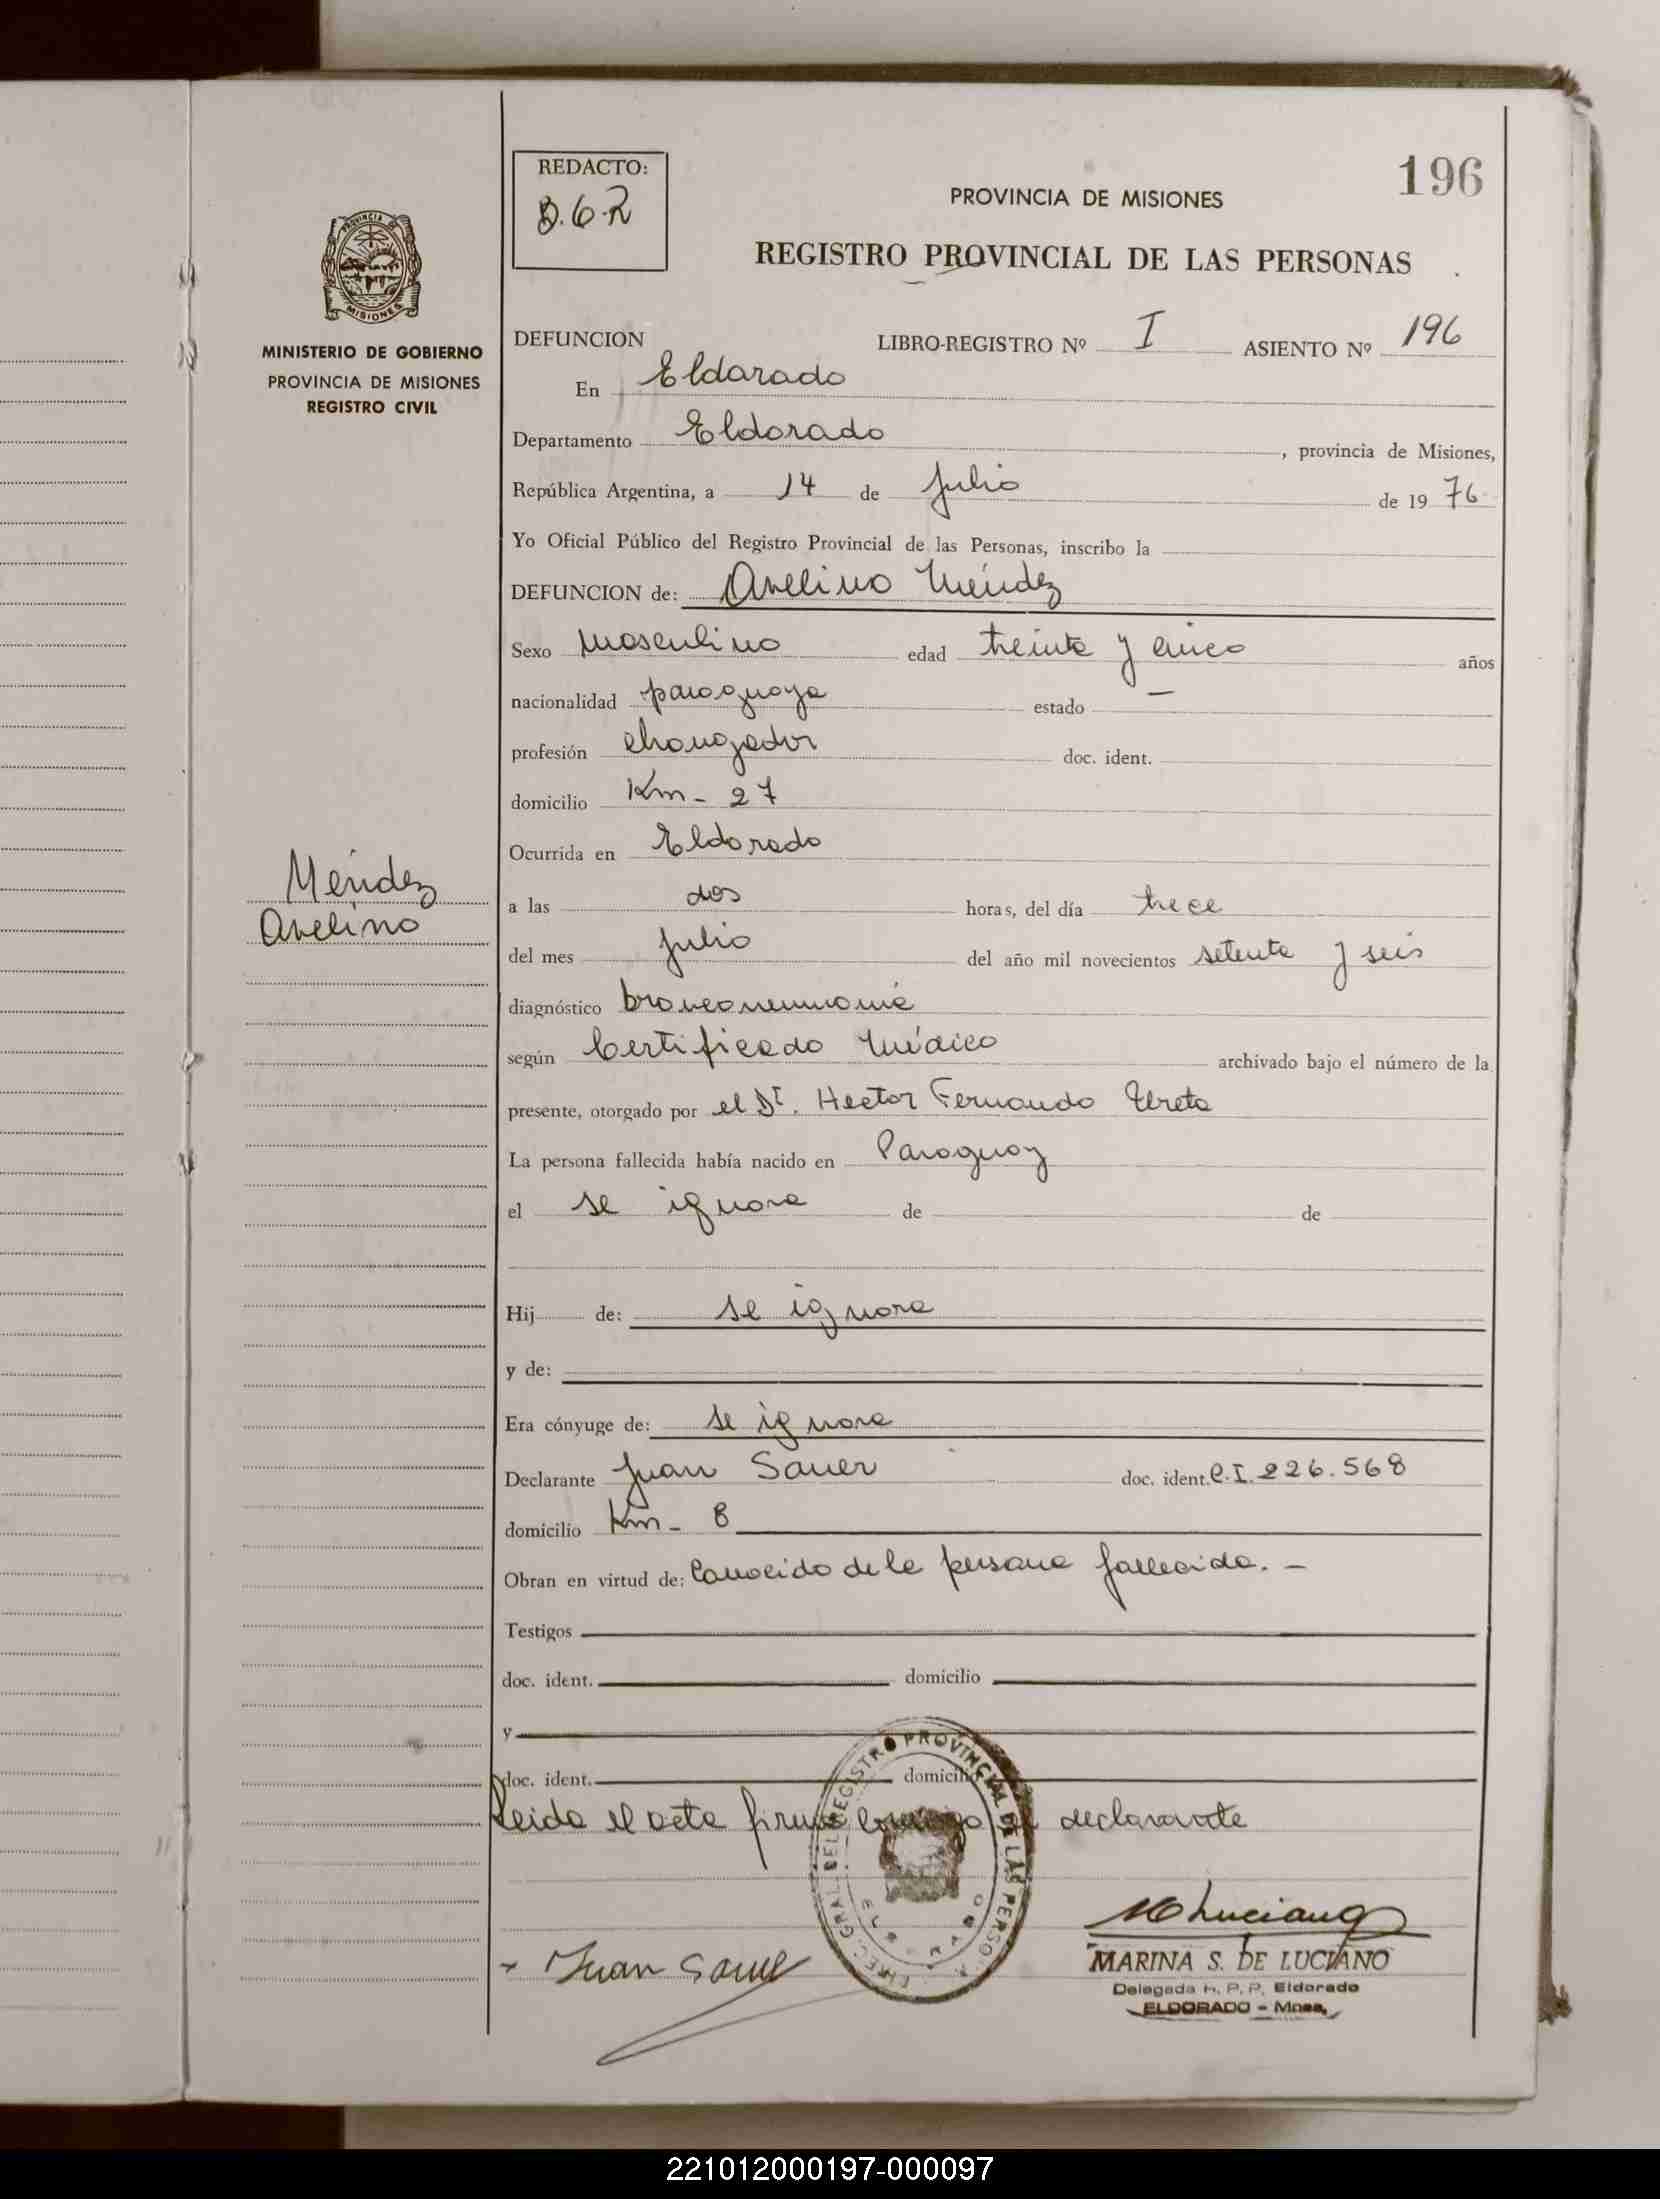 196
REDACTO:
D.G.R
PROVINCIA DE MISIONES
REGISTRO PROVINCIAL DE LAS PERSONAS
PROVINCIA DE
MISIONES
MINISTERIO DE GOBIERNO
PROVINCIA DE MISIONES
REGISTRO CIVIL
DEFUNCION LIBRO-REGISTRO Nº I ASIENTO Nº 196
En Eldorado
Departamento Eldorado, provincia de Misiones,
República Argentina, a 14 de Julio de 1976
Yo Oficial Público del Registro Provincial de las Personas, inscribo la
DEFUNCION de: Avelino Méndez
Sexo Masculino edad treinta y cinco años
nacionalidad paraguaya estado —
profesión changador doc. ident.
domicilio Km- 27
Ocurrida en Eldorado
Méndez
Avelino
a las dos horas, del día trece
del mes Julio del año mil novecientos setenta y seis
diagnóstico bronconeumonía
según Certificado Médico archivado bajo el número de la
presente, otorgado por el Dr. Hector Fernando
La persona fallecida había nacido en Paraguay
el se ignora de de
Hij de: se ignora
y de:
Era cónyuge de: se ignora
Declarante Juan Sauer doc. ident. C.I. 226.568
domicilio Km- 8
Obran en virtud de: Conocido de la persona fallecida. -
Testigos
doc. ident. domicilio
y
doc. ident. domicilio
Leida el acta firma conmigo el declarante
DIREC. GRAL. DEL REGISTRO PROVINCIAL DE LAS PERSONAS
ELDORADO
Juan Sauer
M Luciano
MARINA S. DE LUCIANO
Delegada R. P. P. Eldorado
ELDORADO - Mnes.
221012000197-000097